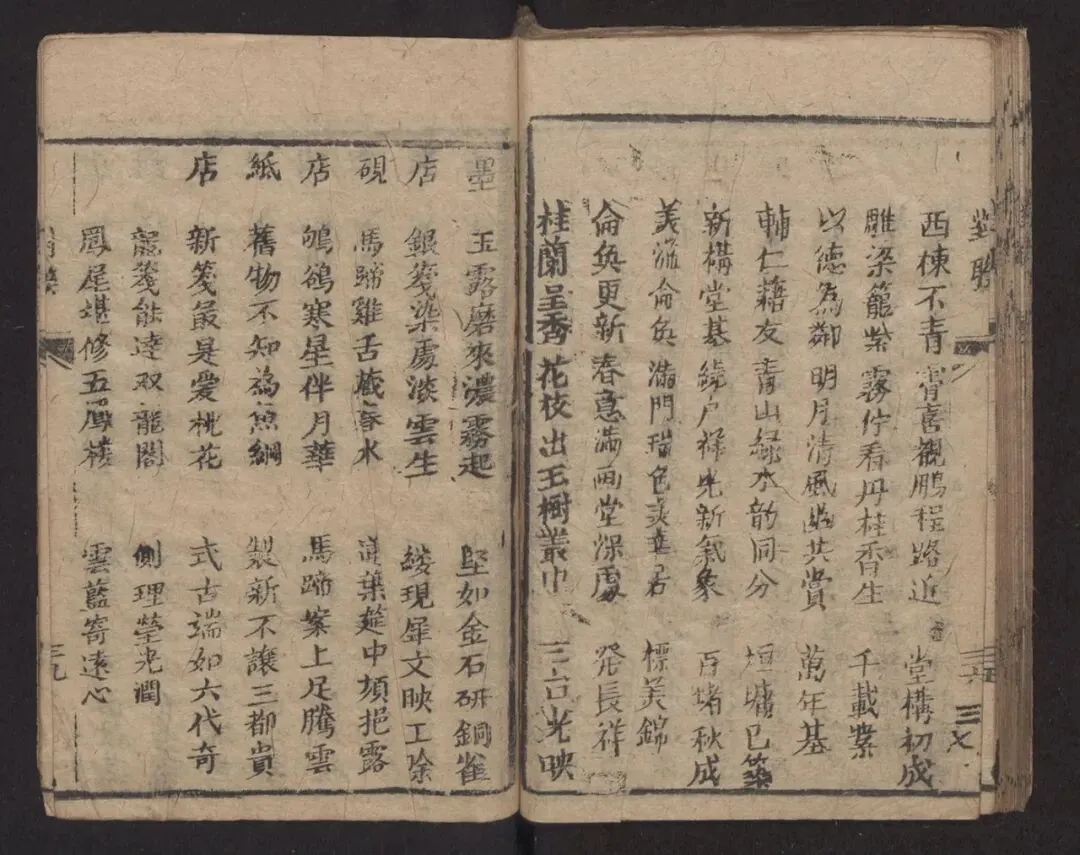 對聯
西棟不青霄喜觀鵬程路近 堂構初成
雕梁籠紫霧佇看丹桂香生 千載業
以德為鄰明月清風共賞 萬年基
輔仁藉友青山緑水韵同分 垣墉已築
新構堂基繞戶祥光新氣象 百堵秋成
美流侖奐滿門瑞色 居 標美錦
侖奐更新春意滿画堂深處 発長祥
桂蘭呈秀花枝出玉樹叢中 三台光映
三七
墨 玉露磨來濃霧起 堅如金石研銅雀
店 銀箋染處淡雲生 綫現犀文映工除
硯 馬蹄雞舌藏春水 葉筵中頃挹露
店 鴝鵒寒星伴月華 馬蹄案上足騰雲
紙 舊物不知為魚網 製新不讓三都貴
店 新箋最是爱桃花 式古端如六代奇
龍箋能達双龍閣 側理瑩光潤
鳳尾堪修五鳳楼 雲藍寄遠心
三九